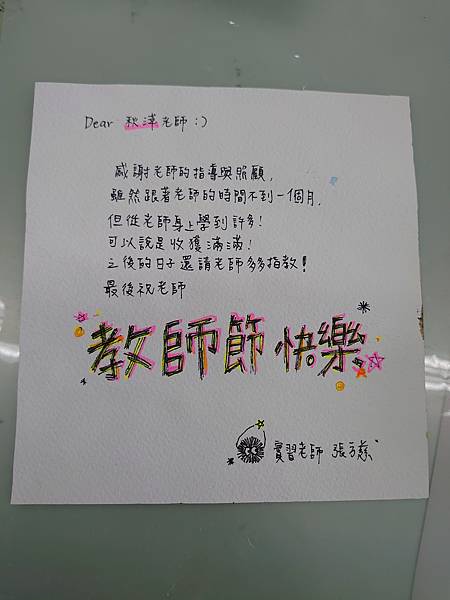 Dear 秋津老師 :)
感謝老師的指導與照顧,
雖然跟著老師的時間不到一個月,
但從老師身上學到許多!
可以說是收獲滿滿!
之後的日子還請老師多多指教!
最後祝老師
教師節快樂
實習老師 張